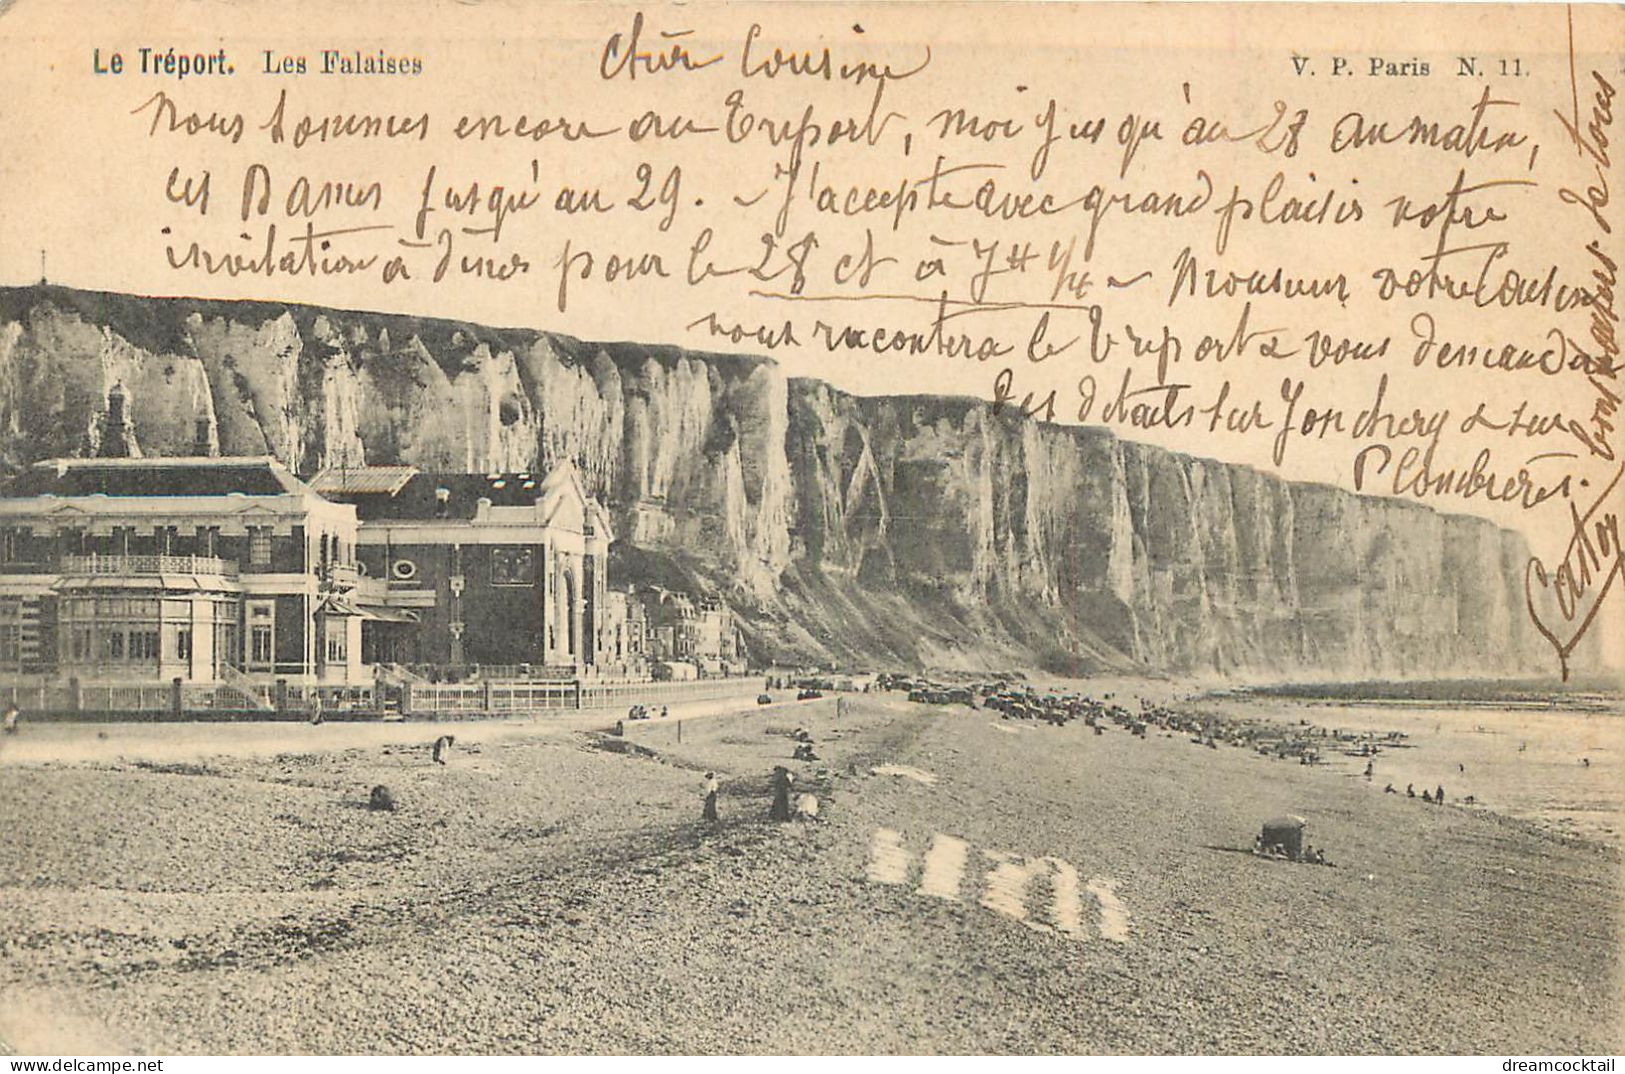 Le Tréport. Les Falaises
V. P. Paris N. 11.
Chère Cousine
Nous sommes encore au Tréport, moi jusqu'au 28 au matin,
ces Dames jusqu'au 29. - J'accepte avec grand plaisir votre
invitation à dîner pour le 28 et à 7H 1/4 - Monsieur votre Cousin
vous racontera le Tréport & vous demandera
des détails sur Jonchery & sur
Plombières.
bons de tous